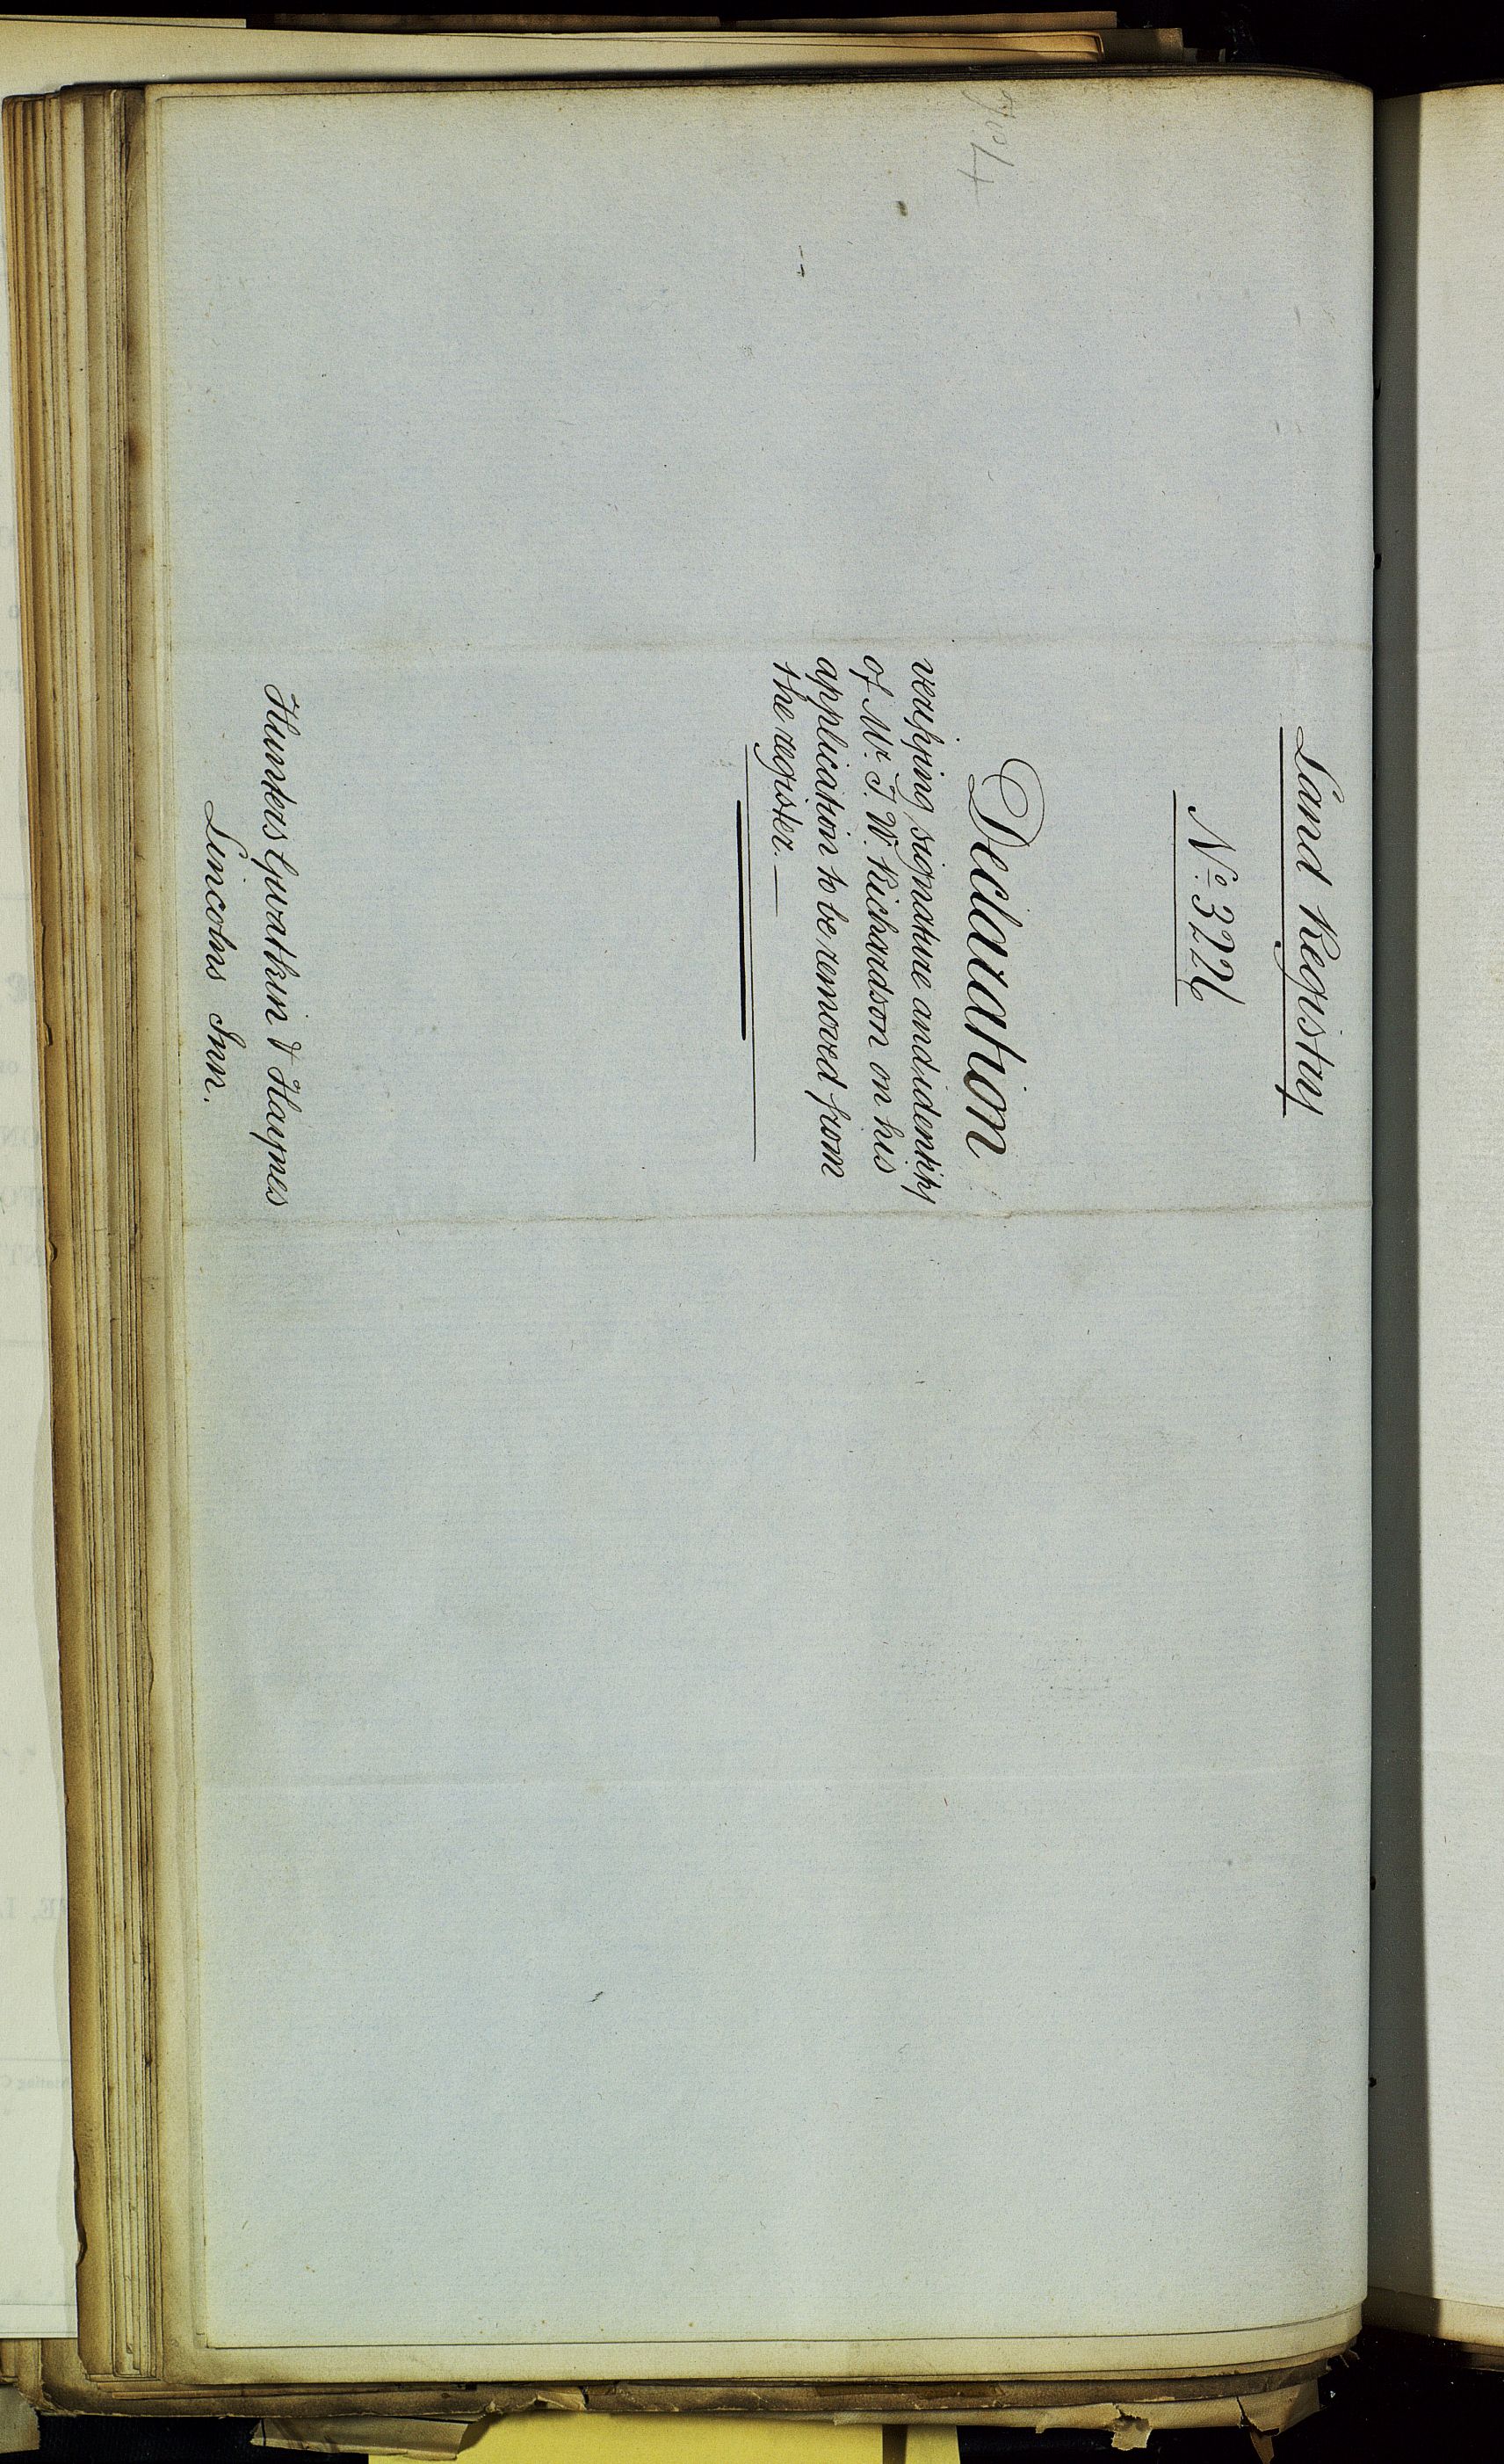 Land Registry
No. 3226
Declaration
verifying signature and identity
of Mr. T. W. Richardson on his
application to be removed from
the register. —
Hunters Gwatkin & Haynes
Lincolns Inn.